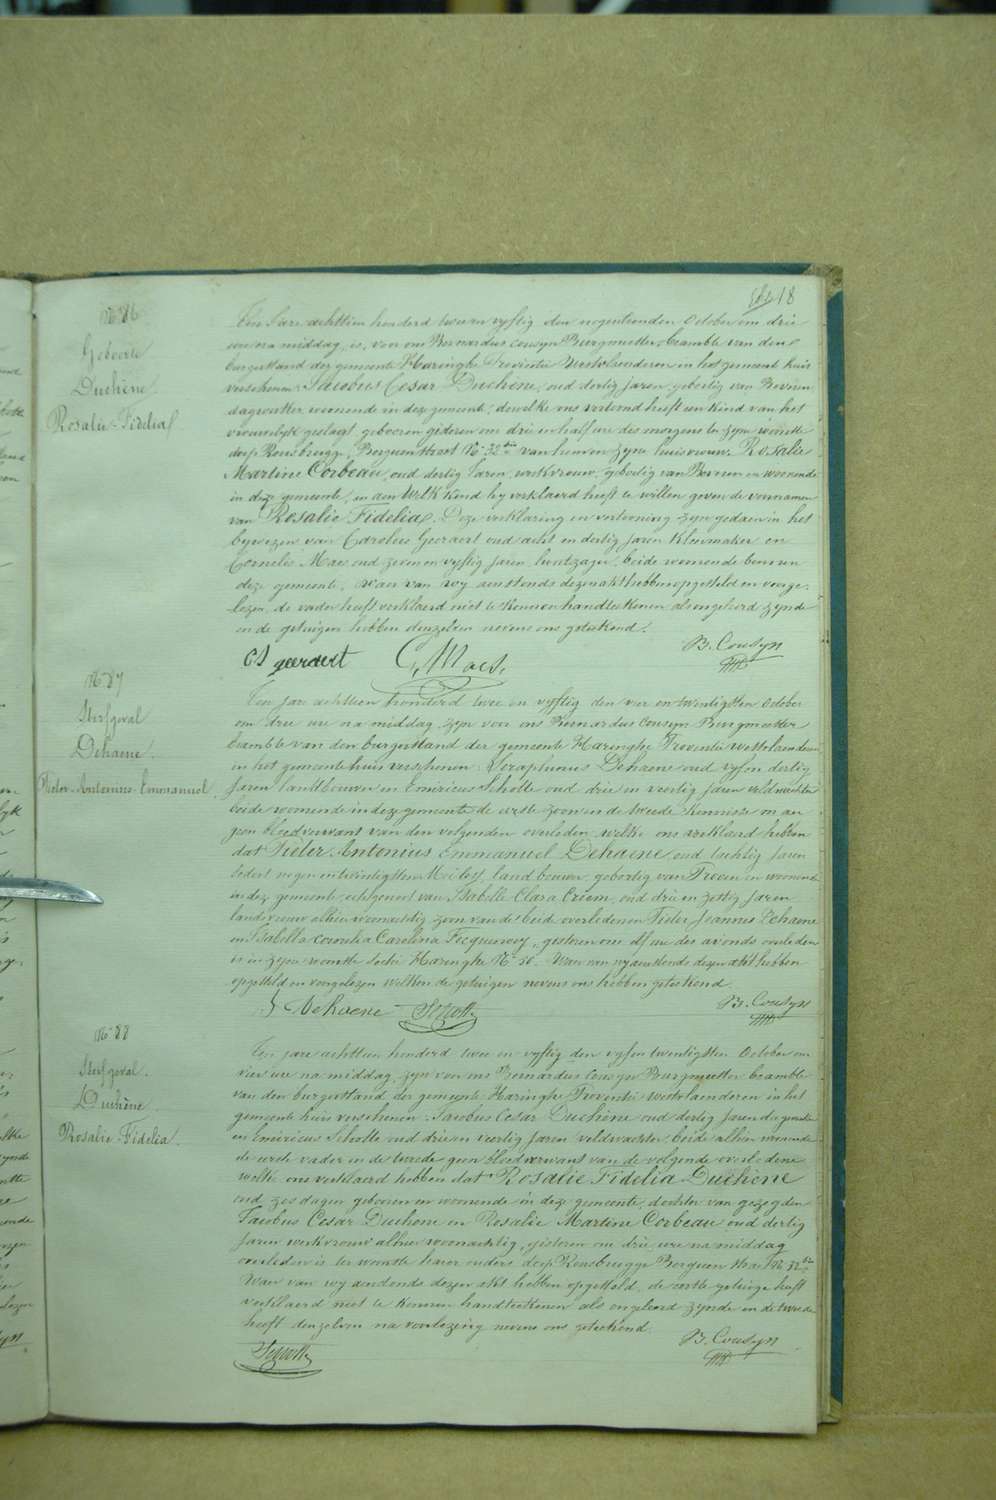 18
N° 86
Geboorte
Duchêne
Rosalie-Fidelia
Ten Jare achttien honderd twee en vyftig den negentienden October om drie
ure na middag, is, voor ons Bernardus Cousyn Burgmeester, beambte van den
burgerstand der gemeente Haringhe Provintie Westvlaenderen in het gemeente huis
verschenen Jacobus Cesar Duchêne, oud dertig jaren, geboortig van Beveren
dagwerker, woonende in deze gemeente, dewelke ons vertoond heeft een kind van het
vrouwelyk geslagt, geboren gisteren om drie en half ure des morgens te zyne woonste
dorp Rousbrugge, Berguenstraat N° 32bis van hem en zyne huisvrouw Rosalie
Martine Corbeau, oud dertig Jaren, werkvrouw, geboortig van Beveren en woonende
in deze gemeente, en aan welk kind hy verklaerd heeft te willen geven de voornamen
van Rosalie Fidelia. Deze verklaring en vertooning zyn gedaen in het
bywezen van Carolus Geeraert oud acht en dertig jaren Kleermaker en
Cornelis Maes oud zeven en vyftig jaren, houtzager, beide woonende binnen
deze gemeente, waer van wy aenstonds dezen akt hebben opgesteld en voorge-
lezen, de vader heeft verklaerd niet te kennen handteekenen als ongeleerd zynde
en de getuigen hebben denzelven nevens ons geteekend.
B. Cousyn
CS geeraert C, Maes,
N° 87
Sterfgeval
Dehaene
Pieter-Antonius-Emmanuel
Ten jare achttien honderd twee en vyftig den vier en twintigsten October
om drie ure na middag, zyn voor ons Bernardus Cousyn Burgmeester
beambte van den burgerstand der gemeente Haringhe Provintie Westvlaenderen
in het gemeente huis verschenen Seraphinus Dehaene oud vyf en dertig
Jaren landbouwer en Emericus Scholte oud drie en veertig Jaren veldwachter
beide woonende in deze gemeente de eerste zoon en de tweede kennisse maar
geen bloedverwant van den volgenden overleden, welke ons verklaerd hebben
dat Pieter Antonius Emmanuel Dehaene, oud tachtig Jaren
sedert negen en twintigsten Mei lest, landbouwer, geboortig van Proven en woonende
in deze gemeente, echtgenoot van Isabelle Clara Criem, oud drie en zestig Jaren
landvrouw alhier woonachtig, zoon van de beide overledenen Pieter Joannes Dehaene
en Isabella Cornelia Carolina Fecquenoey, gisteren om elf ure des avonds overleden
is in zyne woonste Sectie Haringhe N° 50. Waer van wy aenstonds dezen akt hebben
opgesteld en voorgelezen welken de getuigen nevens ons hebben geteekend.
S Dehaene Scholte B. Cousyn
N° 88
Sterfgeval.
Duchêne
Rosalie-Fidelia
Ten jare achttien honderd twee en vyftig den vyf en twintigsten October om
vier ure na middag, zyn voor ons Bernardus Cousyn Burgmeester beambte
van den burgerstand der gemeente Haringhe Provintie Westvlaenderen in het
gemeente huis verschenen Jacobus Cesar Duchêne oud dertig Jaren dagwerker
en Emericus Scholte oud drie en veertig Jaren veldwachter, beide alhier woonende
de eerste vader en de tweede geen bloedverwant van de volgende overledene
welke ons verklaerd hebben dat Rosalie Fidelia Duchêne
oud zes dagen geboren en woonende in deze gemeente, dochter van gezegden
Jacobus Cesar Duchêne en Rosalie Martine Corbeau oud dertig
Jaren werkvrouw alhier woonachtig, gisteren om drie ure na middag
overleden is ter woonste harer ouders dorp Rousbrugge Berguen straat N° 32bis
Waer van wy aenstonds dezen akt hebben opgesteld, de eerste getuige heeft
verklaerd niet te kennen handteekenen als ongeleerd zynde en de tweede
heeft denzelven na voorlezing nevens ons geteekend.
B. Cousyn
Scholte